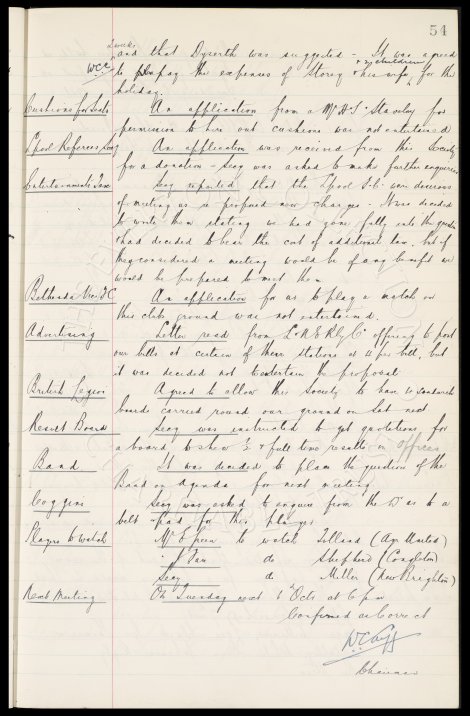 54
2 weeks
and that Dyserth was suggested - It was agreed
WCC
+ 2 children
to pay the expenses of Storey & his wife for the
holiday.
Cushions for Seats An application from a Mr H.S. Staveley for
permission to hire out cushions was not entertained
L'pool Referees Socy An application was received from this Society
for a donation - Secy was asked to make further enquiries
Entertainments Tax Secy reported that the L'pool F.C. were desirous
of meeting us re proposed new charges. It was decided
to write them stating we had gone fully into the question
& had decided to bear the cost of additional tax. but if
they considered a meeting would be of any benefit we
would be prepared to meet them.
Bethesda Vic: F.C. An application for us to play a match on
this clubs ground was not entertained.
Advertising Letter read from L.M.S. Rly Co offering to post
our bills at certain of their stations at 1/- per bill, but
it was decided not to entertain the proposal
British Legion Agreed to allow this Society to have 10 sandwich
boards carried round our ground on Sat next
Result Board Secy was instructed to get quotations for
a board to show ½ & full time results on offices
Band It was decided to place the question of the
Band on Agenda for next meeting.
Coggins Secy was asked to enquire from the Dr as to a
belt & pad for this player
Players to watch Mr Green to watch Tolland (Ayr United)
" do Shepherd (Congleton)
Secy do Miller (New Brighton)
Next Meeting On Tuesday next 1st Octr at 6 pm
Confirmed as Correct
Chairman